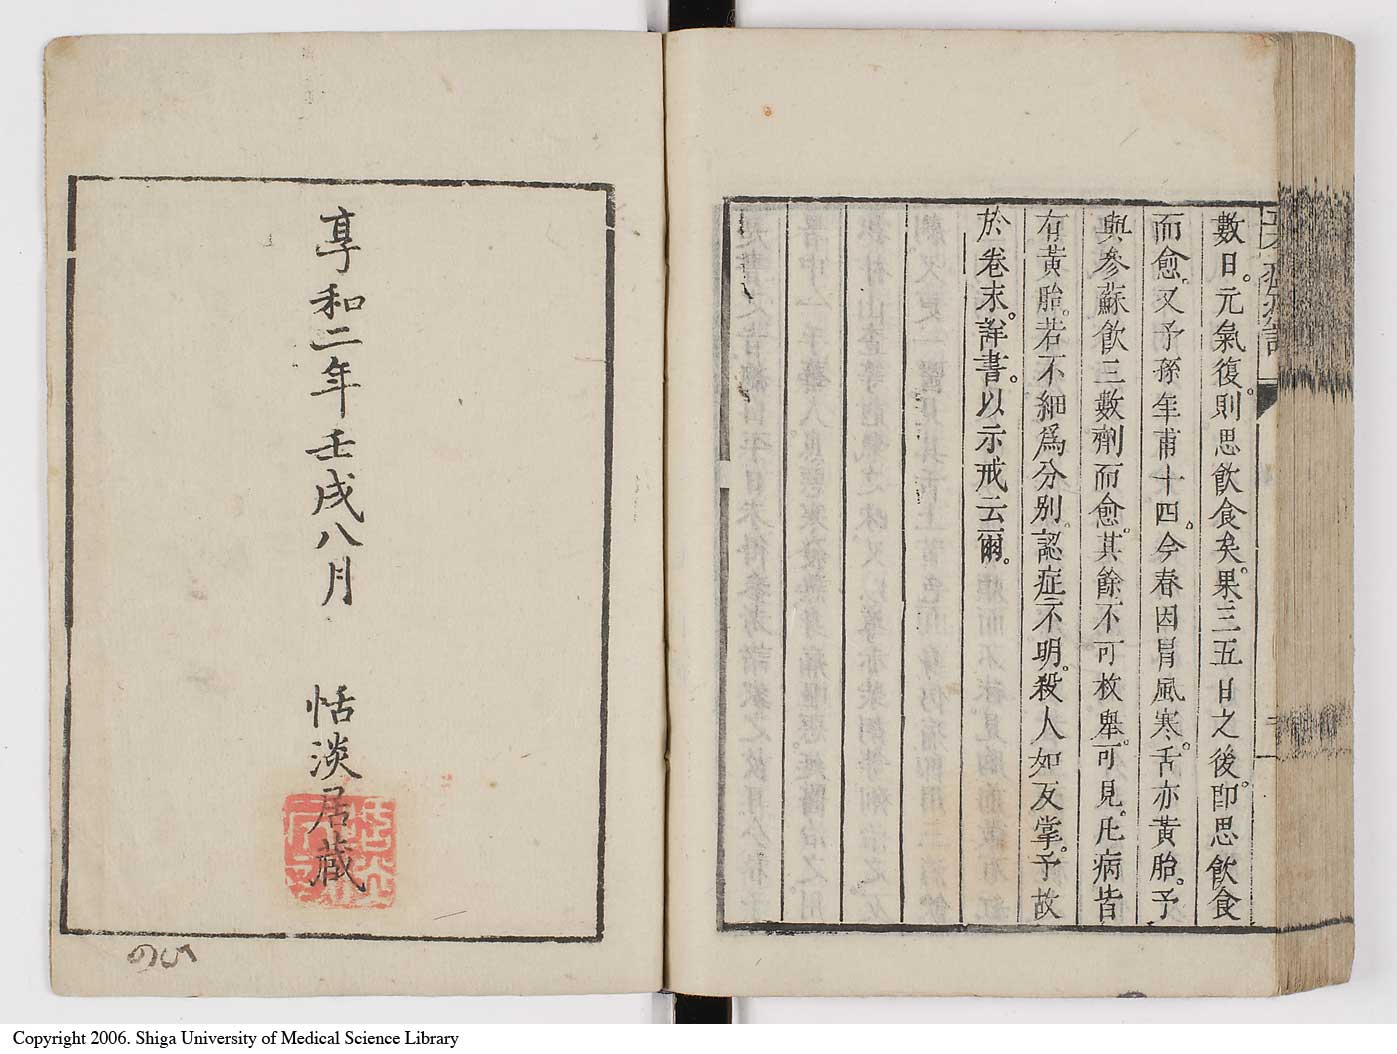 數日。元氣復。則思飮食矣。果三五日之後。即思飮食
而愈。又予孫年甫十四。今春因冐風寒。舌亦黃胎。予
與參蘇飮三數劑而愈。其餘不可枚舉。可見。凡病皆
有黃胎。若不細爲分別。認症不明。殺人如反掌。予故
於卷末。詳書。以示戒云爾。
享和二年壬戌八月　恬淡居藏
Copyright 2006. Shiga University of Medical Science Library